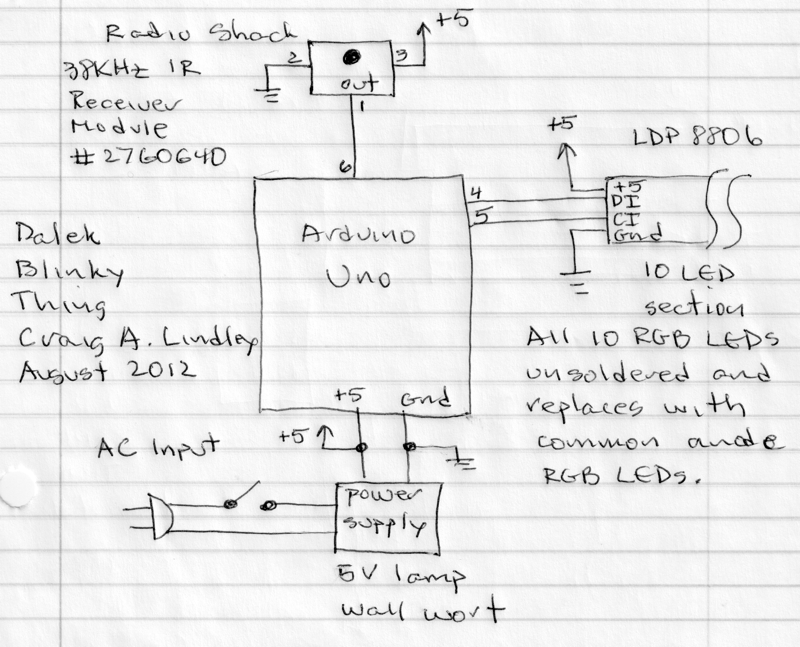 Radio Shack
38KHz IR
Receiver
Module
#2760640
2
3
+5
out
1
6
Arduino
Uno
4
5
+5
LDP 8806
+5
DI
CI
Gnd
10 LED
section
All 10 RGB LEDS
unsoldered and
replaces with
common anode
RGB LEDs.
Dalek
Blinky
Thing
Craig A. Lindley
August 2012
+5
Gnd
+5
AC Input
power
supply
5V lamp
wall wort